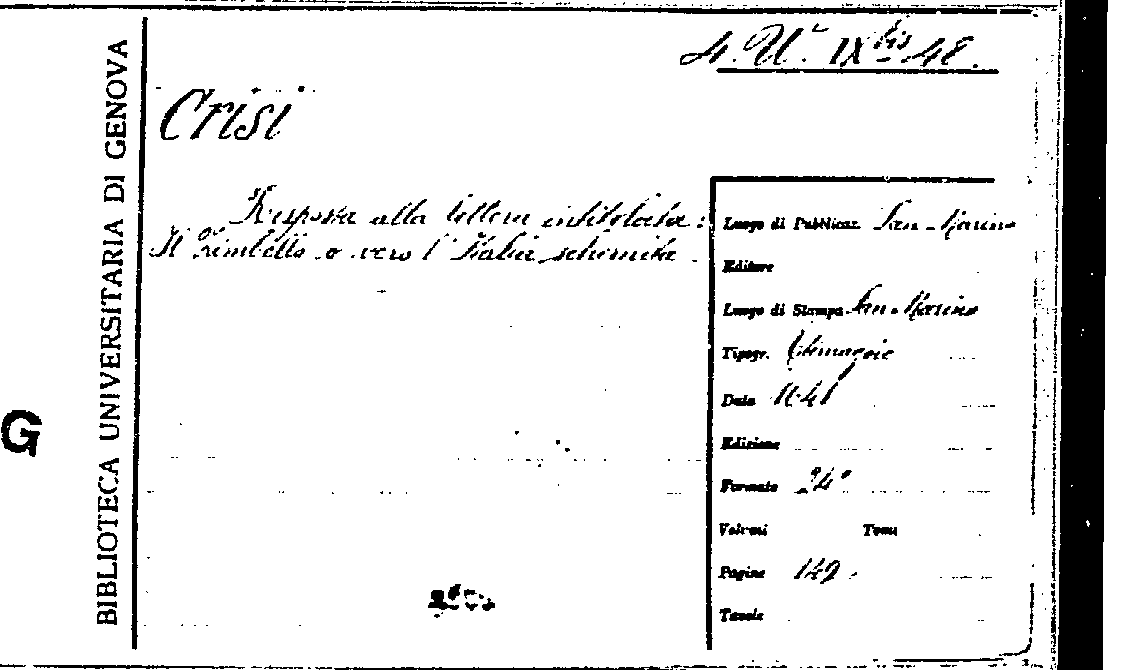 4. U. IX bis 48.
Crisi
Risposta alla lettera intitolata:
Il Zimbello o vero l'Italia schernita
Luogo di Pubblicaz. San-Marino
Editore
Luogo di Stampa San-Marino
Tipogr.
Data 1641
Edizione
Formato 24°
Volumi Tomi
Pagine 149.
Tavole
BIBLIOTECA UNIVERSITARIA DI GENOVA
G